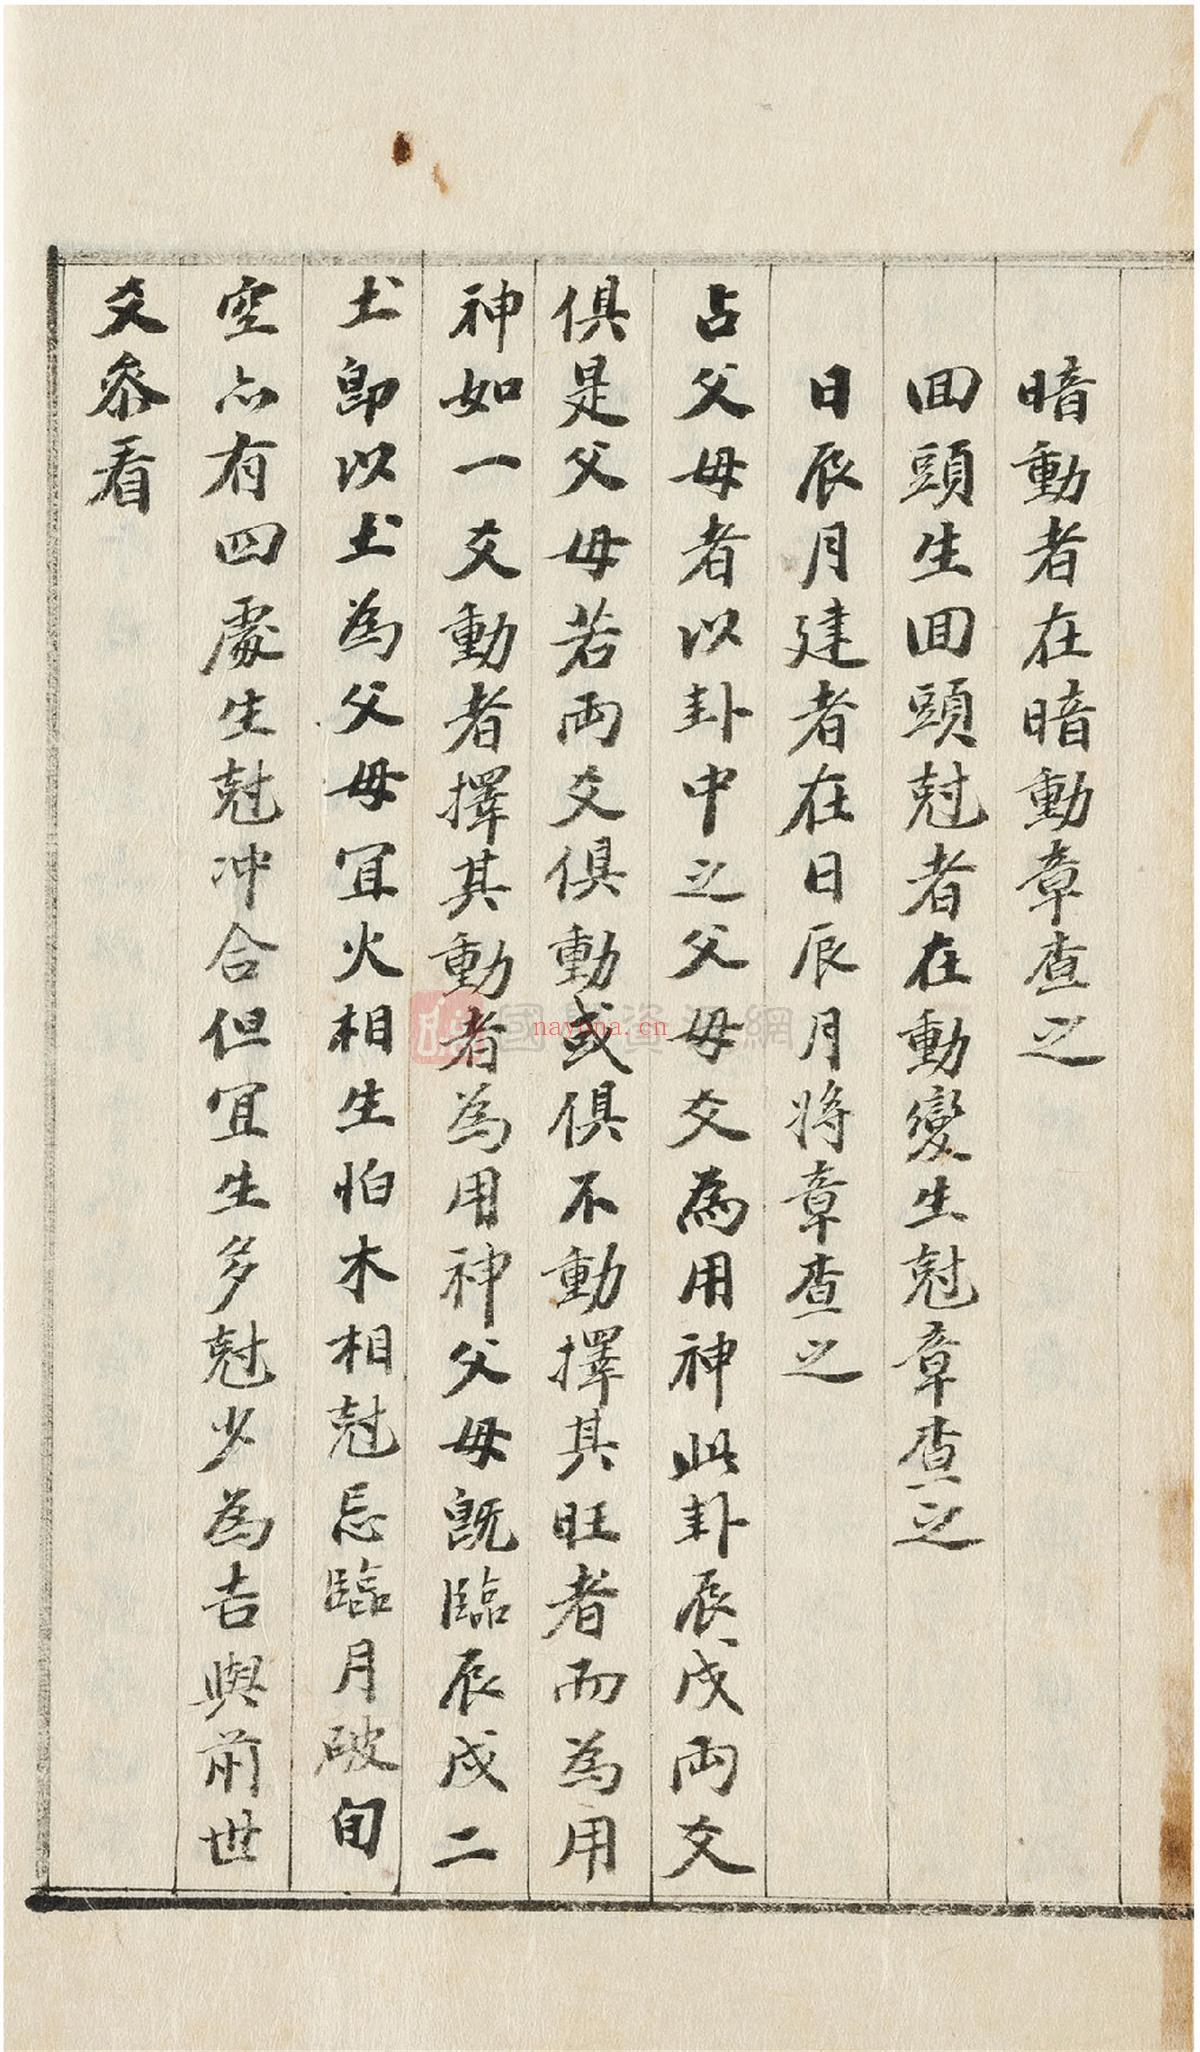 暗動者在暗動章查之
囬頭生囬頭尅者在動變生尅章查之
日辰月建者在日辰月將章查之
占父母者以卦中之父母爻為用神此卦辰戌両爻
俱是父母若両爻俱動或俱不動擇其旺者而為用
神如一爻動者擇其動者為用神父母旣臨辰戌二
土即以土為父母宜火相生怕木相尅忌臨月破旬
空亦有四處生尅冲合但宜生多尅少為吉與前世
爻叅看
nayona.cn